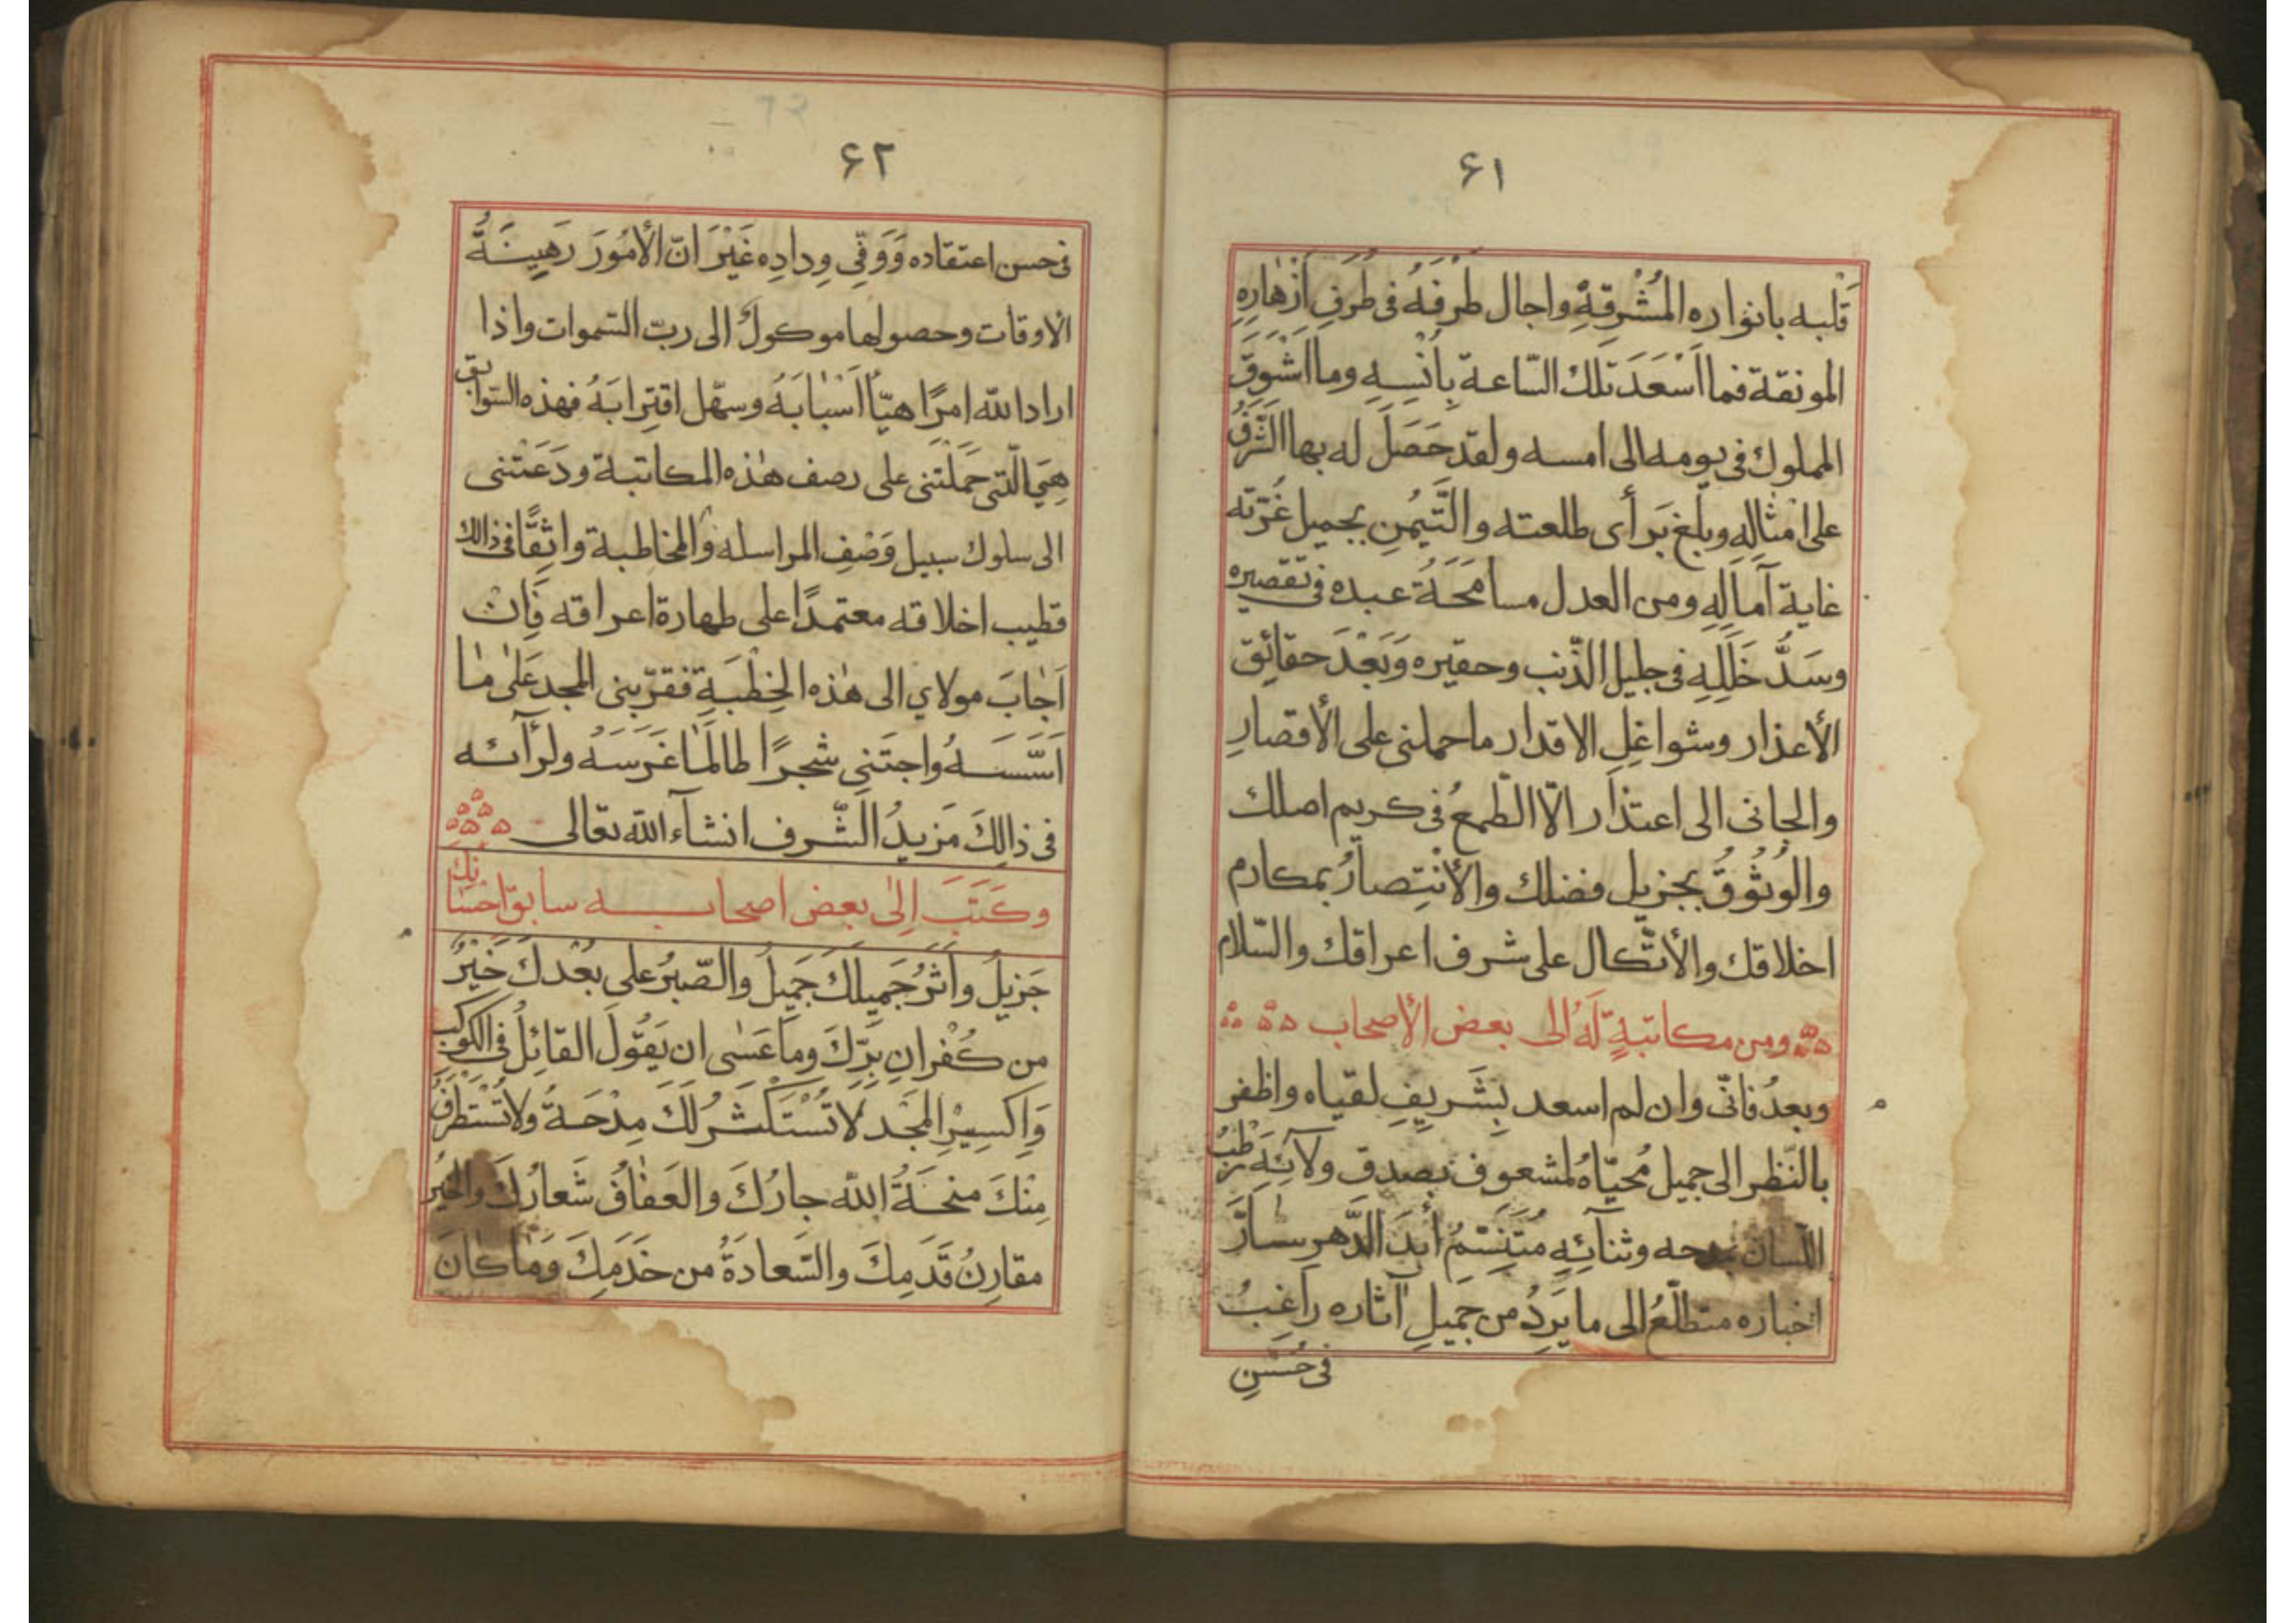 ۶۱
قَلبه بانواره المُشْرِقةِ واجال طَرْفَهُ فى طُرَفِ ازْهارِهِ
المونقة فما اَسْعَدَ تلك السّاعة بِاُنْسِهِ وما اَشْوَقَ
المملوك فى يومه الى امسه ولقد حَصَلَ له بها الشَّرَفُ
على امْثالِهِ وبلغ بَرأى طلعته والتَّيَمُّنِ بجميل غُرّته
غاية آمالِهِ ومن العدل مسامَحَةُ عبده فى تقصيره
وسَدُّ خَلَلِهِ فى جليل الذّنب وحقيره وَبَعْدَ حقائِق
الأعذار وشواغِلِ الاقدار ما حملنى على الأقصارِ
والجانى الى اعتذار الّا الطّمعُ فى كريم اصلك
والوُثُوقُ بجزيل فضلك والأنْتِصارُ بمكارم
اخلاقك والأتّكال على شرف اعراقك والسّلام
ومن مكاتبةٍ لَهُ الى بعض الأصحاب
وبعدُ فانّى وان لم اسعد بِشَرِيفِ لقياه واظفر
بالنّظر الى جميل مُحيّاهُ لمشعوف بصدق ولآئِهِ رَطْبُ
اللّسان بمدحه وثنآئِهِ مُتَنَسِّمُ أبدَ الدَّهرِ سٰارَّ
اخباره متطلّعُ الى ما يَرِدُ من جميلِ آثاره راغبُ
فى حُسْنِ
۶۲
فى حسن اعتقاده وَوَفِّى وِدادِهِ غَيْرَ انّ الأمُورَ رَهِينَةُ
الاوقات وحصولها موكولٌ الى ربّ السّموات واذا
اراد الله امرًا هيّأ اَسْبٰابَهُ وسهّل اقتِرابَهُ فهذه السّوابق
هِىَ الّتى حَمَلَتْنى على رصف هٰذه المكاتبة ودَعَتْنى
الى سلوك سبيل وَصْفِ المراسله والمخاطبة واثِقًا فى ذالك
قطيب اخلاقه معتمدًا على طهارة اعراقه فَاِنْ
اَجٰابَ مولاي الى هٰذه الخِطْبَةِ فقرّبنى المجد عَلٰى مٰا
اَسَّسَهُ واجتَنِى شجرًا طالَمٰا غَرَسَهُ ولرأآئه
فى ذالِكَ مَزيدُ الشّرف انشآء الله تعالى
وكَتَبَ اِلٰى بعض اصحابه سابق اِحْسٰانِكَ
جَزيلُ واَثَرُ جَميلِكَ جَميلُ والصّبرُ على بُعْدِكَ خَيْرُ
من كُفْرانِ بِرِّكَ وما عَسٰى ان يَقُولَ القائِلُ فى الكَوكَبِ
وَاِكسِيْرِ المَجْدِ لاٰ تُسْتَكْثَرُ لَكَ مِدْحَةُ ولا تُسْتَطْرَفُ
مِنْكَ منحَةُ الله جارُكَ والعَفٰافُ شَعارُكَ والخَيرُ
مقارِنُ قَدَمِكَ والسّعادَةُ من خَدَمِكَ وَمٰا كٰانَ